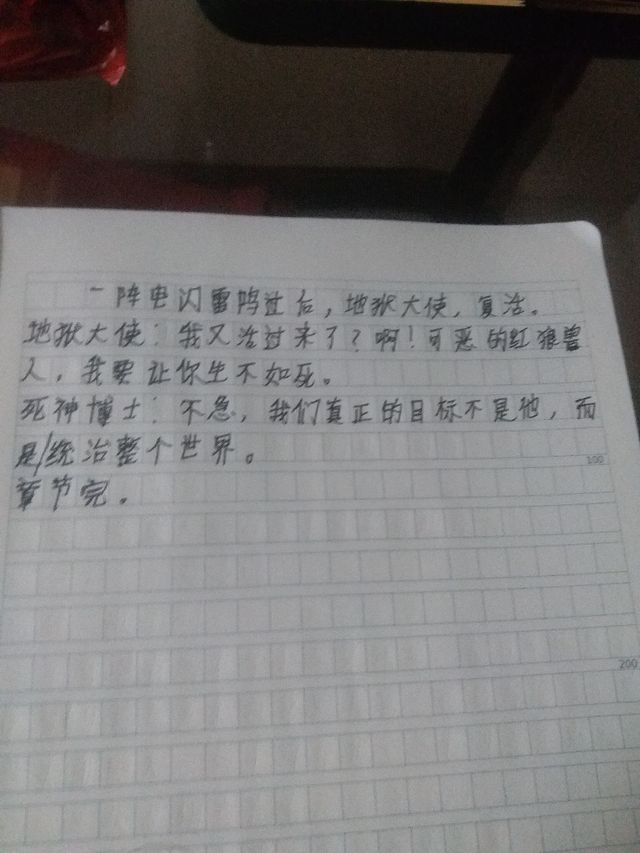 一阵电闪雷鸣过后，地狱大使，复活。
地狱大使：我又活过来了？啊！可恶的红狼兽
人，我要让你生不如死。
死神博士：不急，我们真正的目标不是他，而
是统治整个世界。
100
章节完。
200